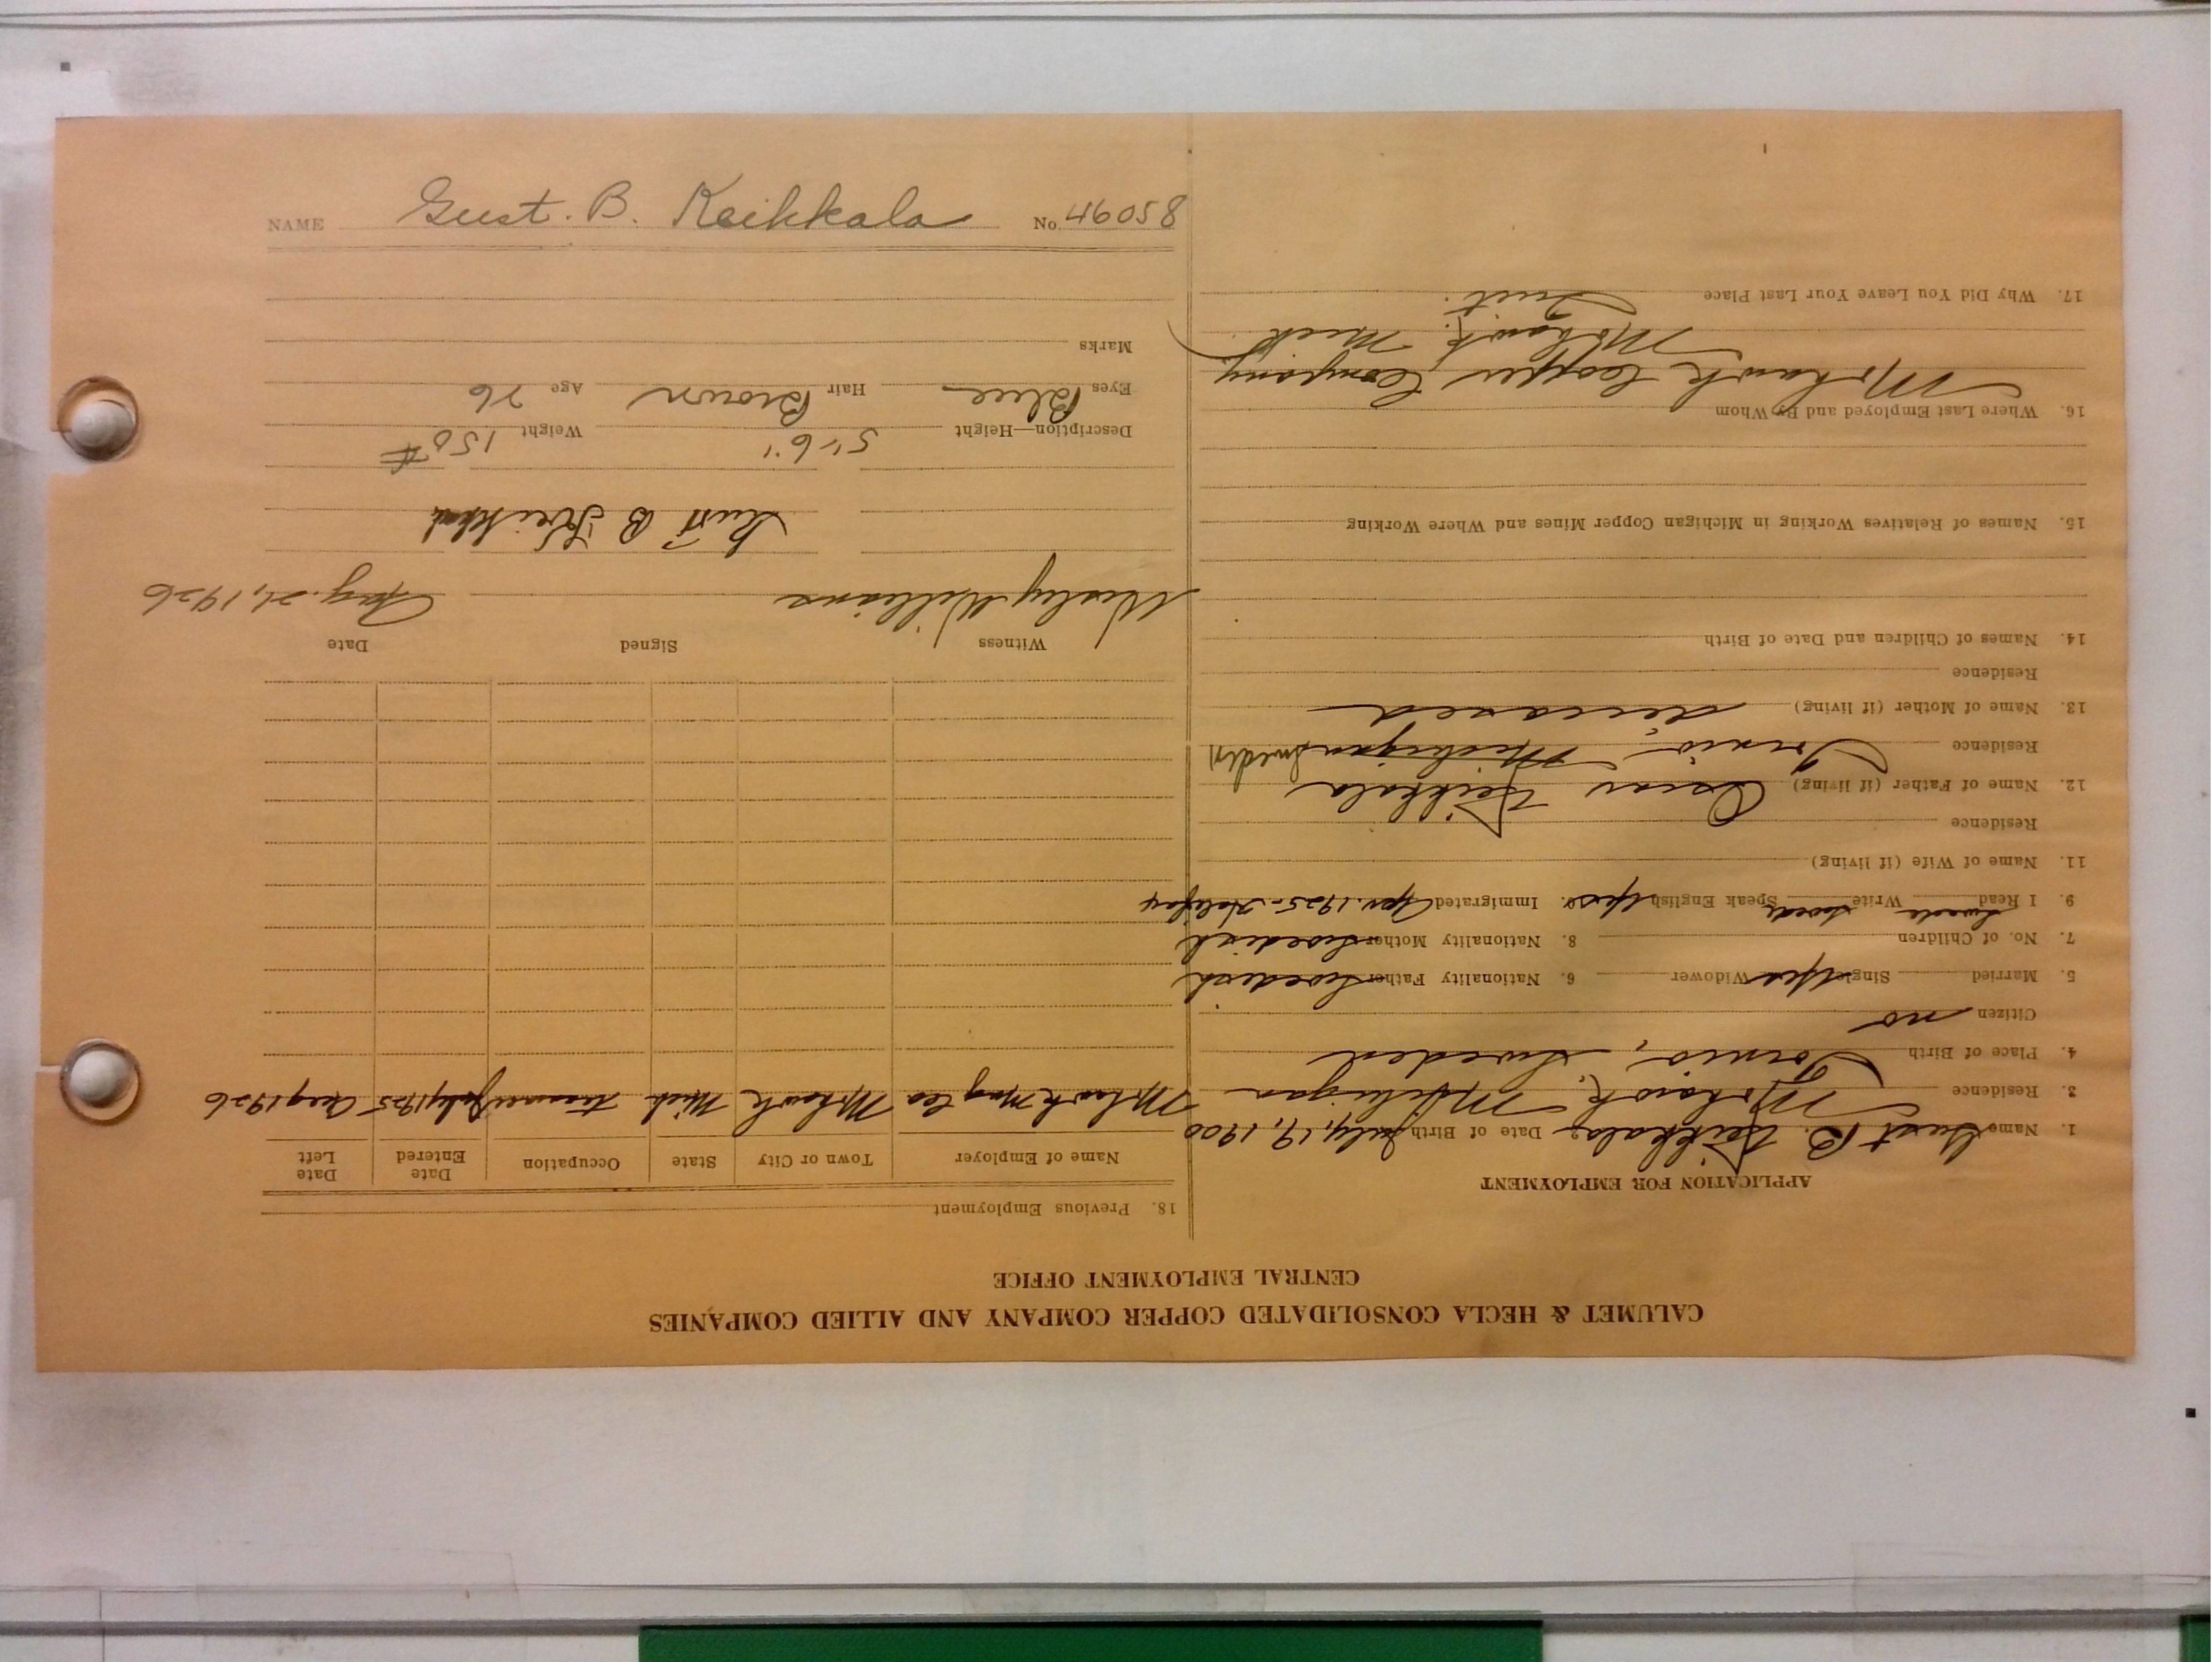 CALUMET & HECLA CONSOLIDATED COPPER COMPANY AND ALLIED COMPANIES
CENTRAL EMPLOYMENT OFFICE
APPLICATION FOR EMPLOYMENT
1. Name Gust B. Keikkala 2. Date of Birth July, 19, 1900
3. Residence Mohawk, Michigan
4. Place of Birth Tornio, Sweden
Citizen no
5. Married Single Yes Widower 6. Nationality Father Swedish
7. No. of Children 8. Nationality Mother Swedish
9. I Read Swede Write Swede Speak English Yes 10. Immigrated Apr. 1925 - Halifax
11. Name of Wife (if living)
Residence
12. Name of Father (if living) Oscar Keikkala
Residence Tornio, Michigan Sweden
13. Name of Mother (if living) deceased
Residence
14. Names of Children and Date of Birth
15. Names of Relatives Working in Michigan Copper Mines and Where Working
16. Where Last Employed and By Whom
Mohawk Copper Company
Mohawk, Mich
17. Why Did You Leave Your Last Place Quit.
18. Previous Employment
Name of Employer Town or City State Occupation Date Entered Date Left
Mohawk Mng Co Mohawk Mich Trammer July 1925 Aug 1926
Witness Signed Date
Wesley Williams Aug. 21, 1926
Gust B Keikkala
Description—Height 5"6" Weight 150 #
Eyes Blue Hair Brown Age 26
Marks
NAME Gust. B. Keikkala No. 46058